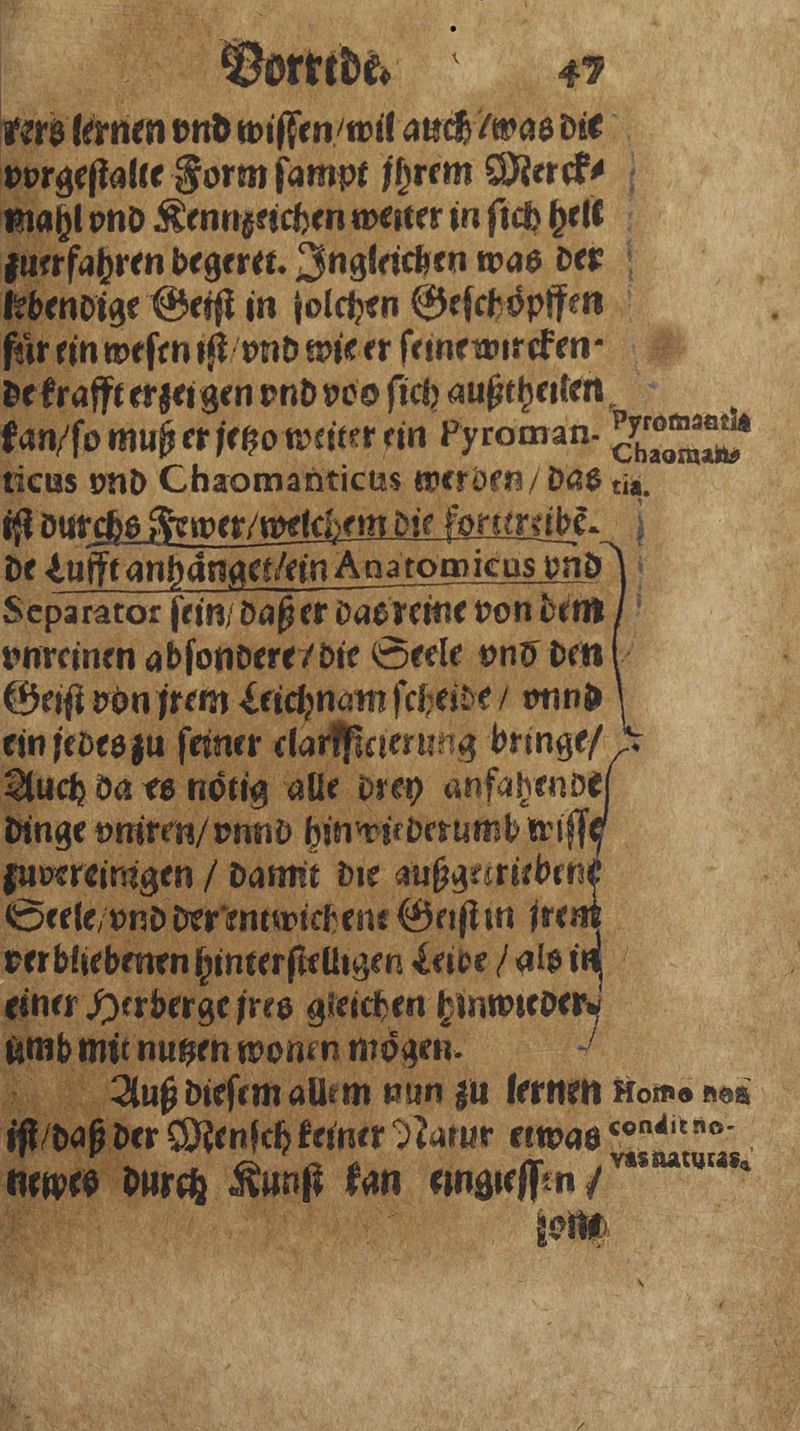 Vorrede. 47
rers lernen vnd wissen/wil auch/was die
vorgestalte Form sampt jhrem Merck-
mahl vnd Kennzeichen weiter in sich helt
zuerfahren begeret. Ingleichen was der
lebendige Geist in solchen Geschöpffen
für ein wesen ist/vnd wie er seine wircken-
de krafft erzeigen vnd voo sich außtheilen
kan/so muß er jetzo weiter ein Pyroman-
Pyromantia
Chaoman-
tia.
ticus vnd Chaomanticus werden/das
ist durchs Fewer/welchem die forttreibẽ-
de Lufft anhänget/ein Anatomicus vnd
Separator sein/daß er das reine von dem
vnreinen absondere/die Seele vnd den
Geist von jrem Leichnam scheide/ vnnd
ein jedes zu seiner clarificierung bringe/
Auch da es nötig alle drey anfahende
dinge vniren/vnnd hinwiederumb wisse
zuvereinigen / damit die außgetriebene
Seele/vnd der entwichene Geist in jrem
verbliebenen hinterstelligen Leibe/als in
einer Herberge jres gleichen hinwieder-
umb mit nutzen wonen mögen.
Auß diesem allem nun zu lernen
ist/daß der Mensch keiner Natur etwas
newes durch Kunst kan eingiessen/
Homo non
condit no-
vas naturas.
son-